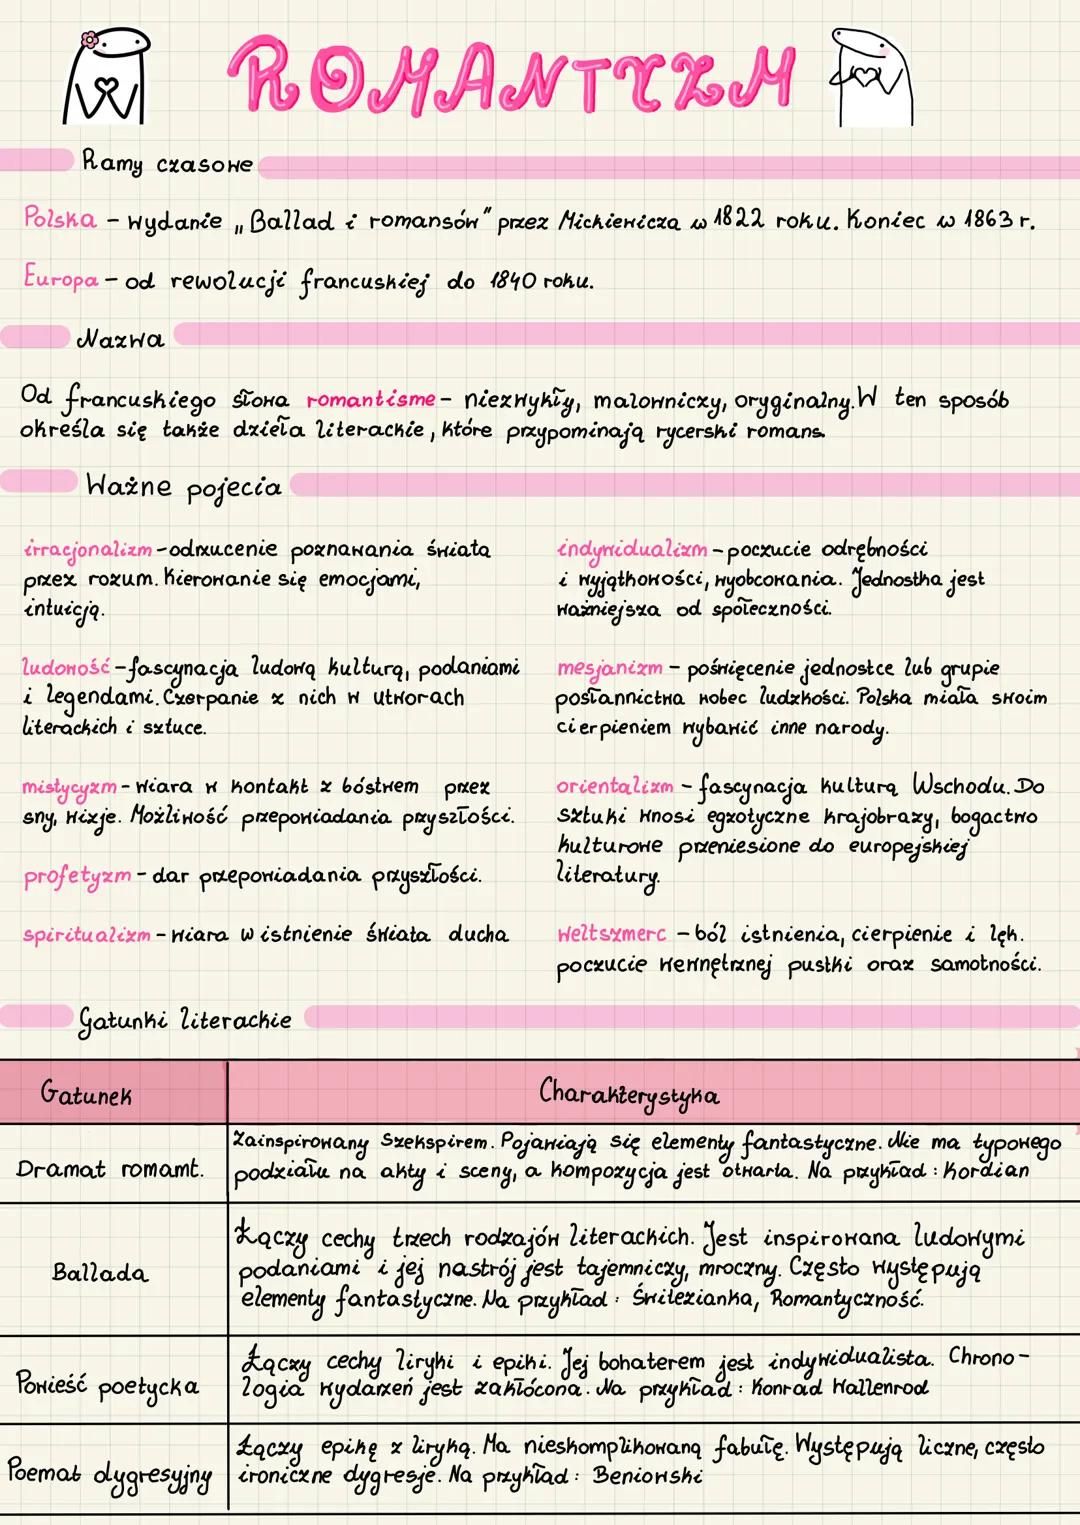 ROMANTYZM
Ramy czasowe
Polska - wydanie „Ballad i romansów" przez Mickiewicza w 1822 roku. Koniec w 1863 r.
Europa - od rewolucji francuskiej do 1840 roku.
Nazwa
Od francuskiego słowa romantisme - niezwykły, malowniczy, oryginalny. W ten sposób
określa się także dzieła literackie, które przypominają rycerski romans.
Ważne pojecia
irracjonalizm - odrzucenie poznawania świata
przez rozum. Kierowanie się emocjami,
intuicją.
ludowość - fascynacja ludową kulturą, podaniami
i legendami. Czerpanie z nich w utworach
literackich i sztuce.
mistycyzm - wiara w kontakt z bóstwem przez
sny, wizje. Możliwość przepowiadania przyszłości.
profetyzm - dar przepowiadania przyszłości.
spiritualizm - wiara w istnienie świata ducha
indywidualizm - poczucie odrębności
i wyjątkowości, wyobcowania. Jednostka jest
ważniejsza od społeczności.
mesjanizm - poświęcenie jednostce lub grupie
posłannictwa wobec ludzkości. Polska miała swoim
cierpieniem wybawić inne narody.
orientalizm - fascynacja kulturą Wschodu. Do
sztuki wnosi egzotyczne krajobrazy, bogactwo
kulturowe przeniesione do europejskiej
literatury.
weltszmerc - ból istnienia, cierpienie i lęk.
poczucie wewnętrznej pustki oraz samotności.
Gatunki literackie
Gatunek
Charakterystyka
Dramat romamt.
Zainspirowany Szekspirem. Pojawiają się elementy fantastyczne. Nie ma typowego
podziału na akty i sceny, a kompozycja jest otwarta. Na przykład: Kordian
Ballada
Łączy cechy trzech rodzajów literackich. Jest inspirowana ludowymi
podaniami i jej nastrój jest tajemniczy, mroczny. Często występują
elementy fantastyczne. Na przykład: Świtezianka, Romantyczność.
Powieść poetycka
Łączy cechy liryki i epiki. Jej bohaterem jest indywidualista. Chrono-
logia wydarzeń jest zakłócona. Na przykład: Konrad Wallenrod
Poemat dygresyjny
Łączy epikę z liryką. Ma nieskomplikowaną fabułę. Występują liczne, często
ironiczne dygresje. Na przykład: Beniowski